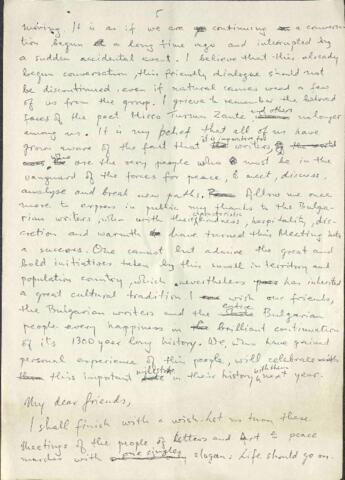 5
moving. It is as if we are continuing a conversa-
tion begun a long time ago and interrupted by
a sudden accidental event. I believe that this already
begun conversation, this friendly dialogue should not
be discontinued even if natural causes weed a few
of us from the group. I grieve to remember the beloved
faces of the poet Mirco Tursum Zante and others no longer
among us. It is my belief that all of us have
grown aware of the fact that it is important for writers,
who are the very people who must be in the
vanguard of the forces for peace, to meet, discuss,
analyse and break new paths. Allow me once
more to express in public my thanks to the Bulga-
rian writers, who with their characteristic kindness, hospitality, dis-
cretion and warmth have turned this Meeting into
a success. One cannot but admire the great and
bold initiatives taken by this small in territory and
population country, which nevertheless has inherited
a great cultural tradition. I wish our friends,
the Bulgarian writers and the entire Bulgarian
people every happiness in brilliant continuation
of its 1300 year long history. We, who have gained
personal experience of this people, will celebrate
this important milestone in their history with them next year.
My dear friends,
I shall finish with a wish. Let us turn these
Meetings of the people of Letters and Art to peace
marches with slogan: Life should go on.